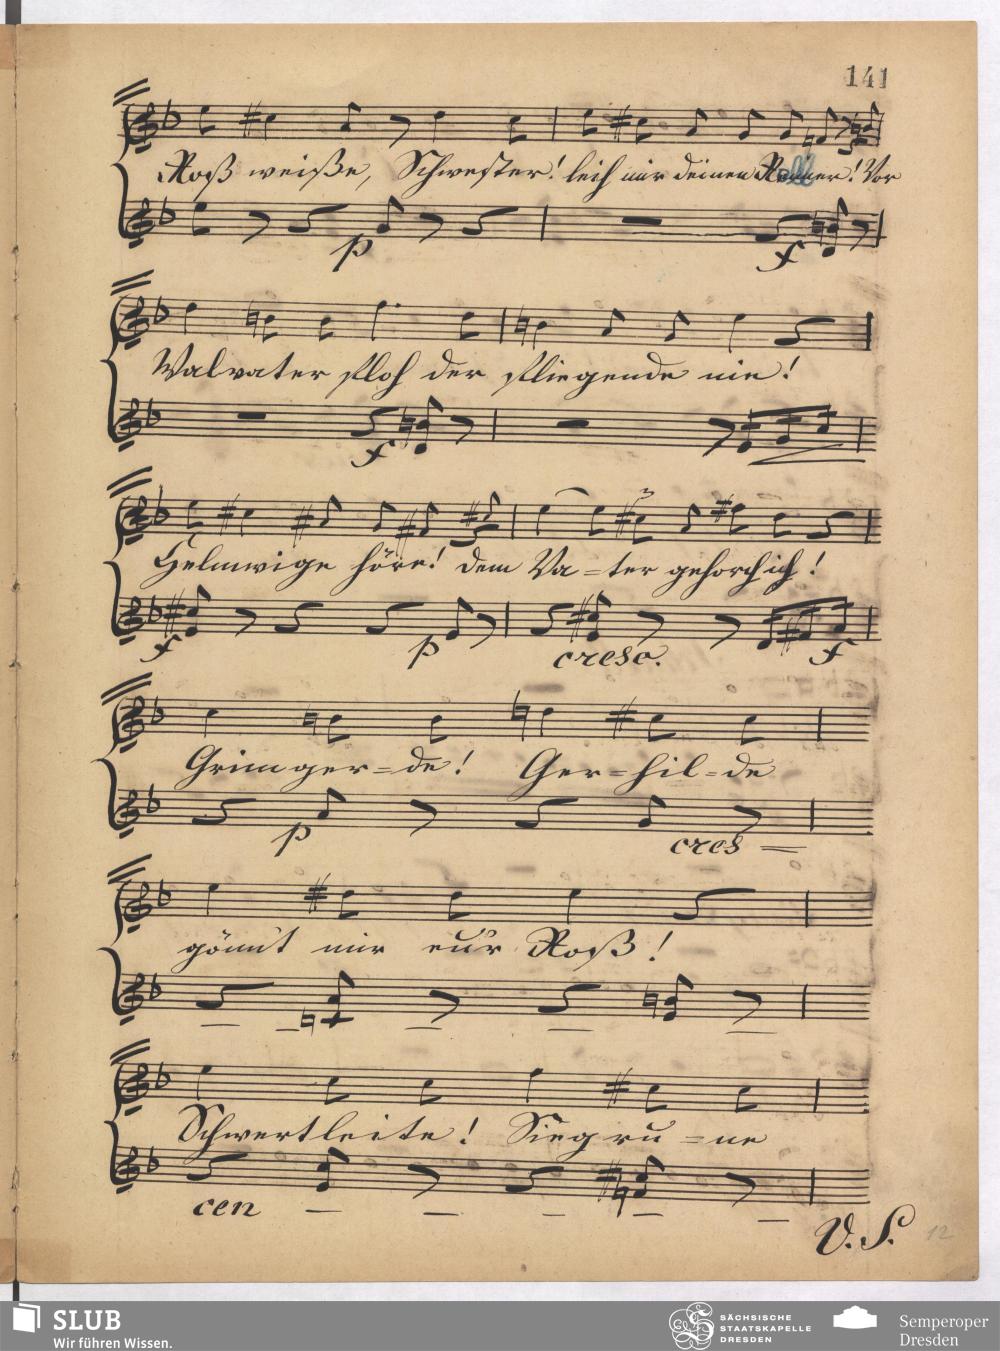 141
Roß weiße, Schwester! leih mir deinen Renner! Vor
p f
Walvater floh der fliegende nie!
f
Helmwige höre! dem Va=ter gehorch ich!
f p cresc. f
Grimger=de! Ger=hil=de
p cres =
gönnt mir eu'r Roß!
Schwertleite! Siegru=ne
cen
V. S.
12
SLUB
Wir führen Wissen.
SÄCHSISCHE
STAATSKAPELLE
DRESDEN
Semperoper
Dresden